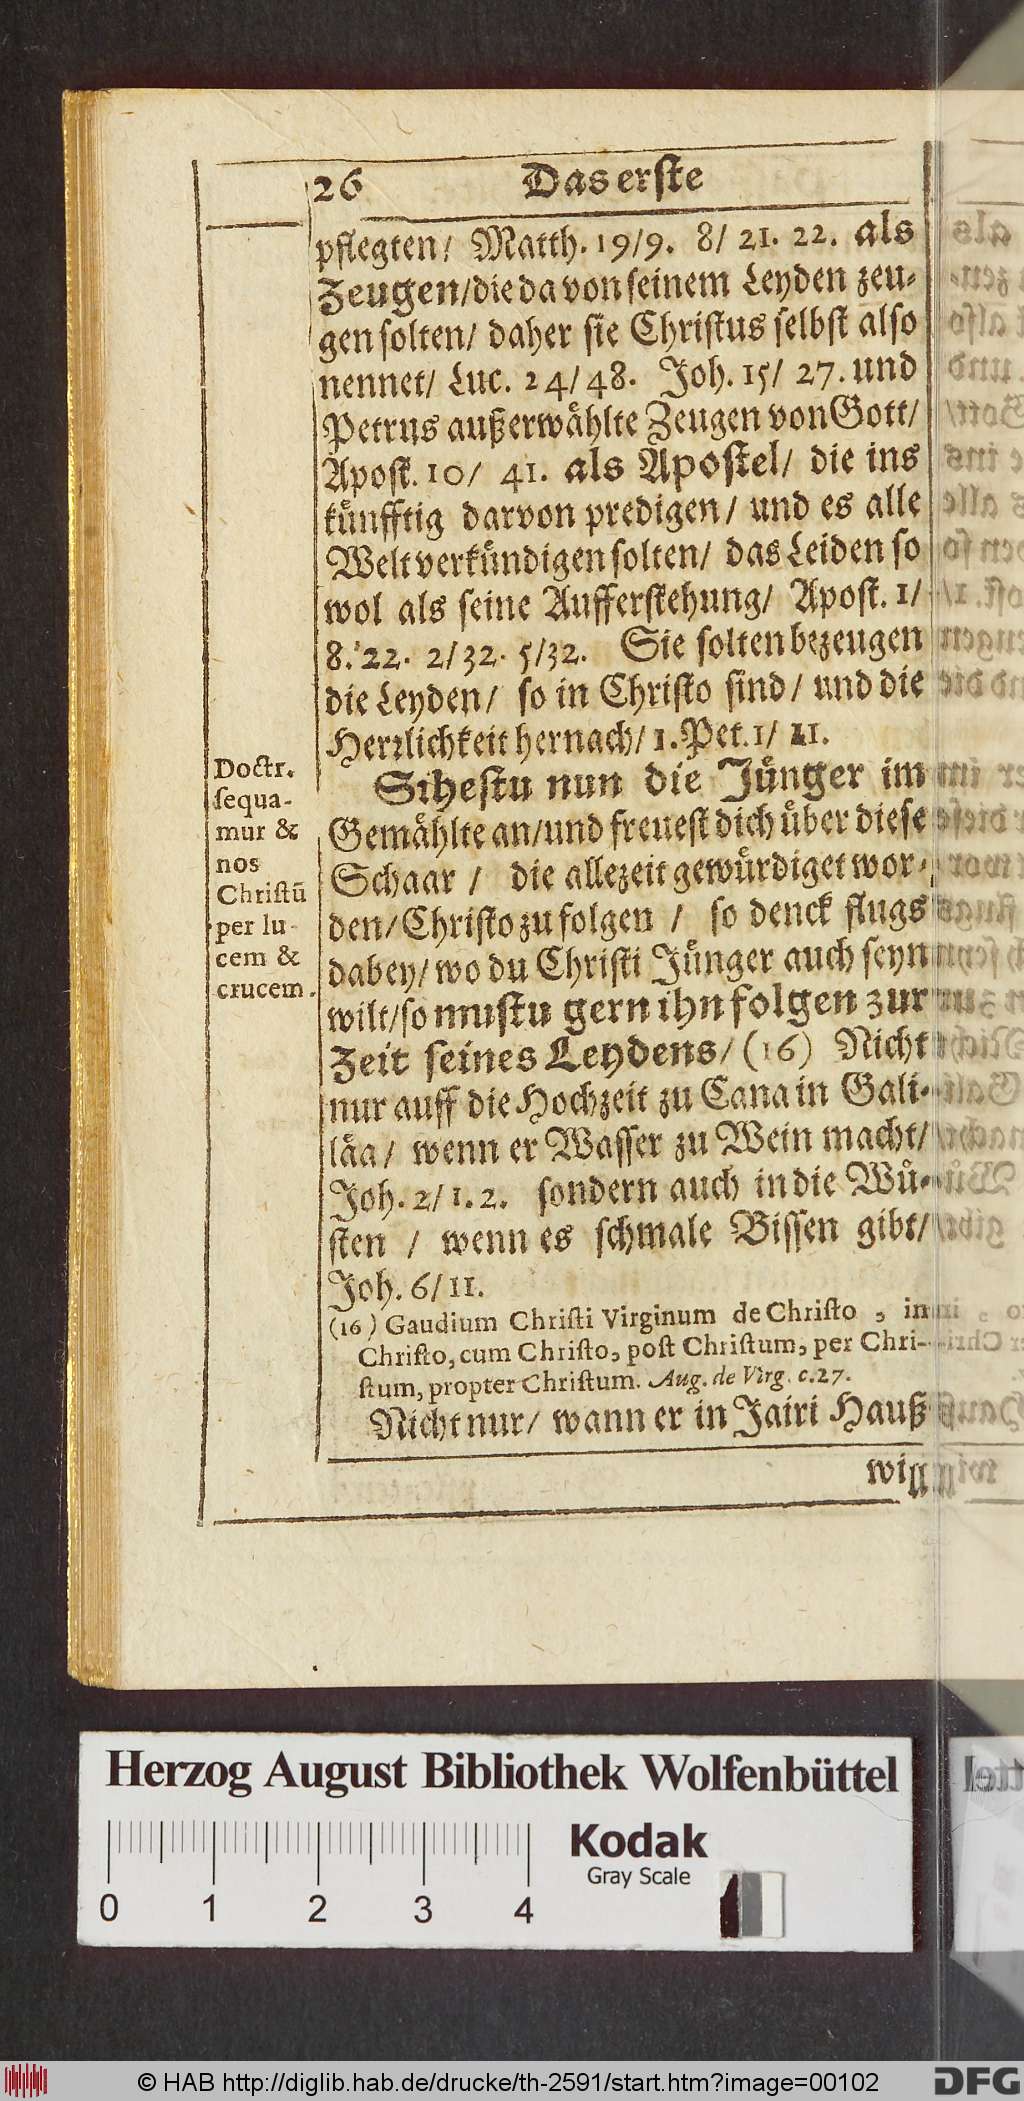 26 Das erste
pflegten/ Matth. 19/9. 8/ 21. 22. als
Zeugen/die da von seinem Leyden zeu-
gen solten/ daher sie Christus selbst also
nennet/ Luc. 24/48. Joh. 15/ 27. und
Petrus außerwählte Zeugen von Gott/
Apost. 10/ 41. als Apostel/ die ins
künfftig darvon predigen/ und es alle
Welt verkündigen solten/ das Leiden so
wol als seine Aufferstehung/ Apost. 1/
8. 22. 2/32. 5/32. Sie solten bezeugen
die Leyden/ so in Christo sind/ und die
Herrlichkeit hernach/ 1. Pet. 1/ 11.
Doctr.
sequa-
mur &
nos
Christū
per lu-
cem &
crucem.
Sihestu nun die Jünger im
Gemählte an/und freuest dich über diese
Schaar / die allezeit gewürdiget wor-
den/Christo zu folgen / so denck flugs
dabey/ wo du Christi Jünger auch seyn
wilt/so mustu gern ihn folgen zur
Zeit seines Leydens/ (16) Nicht
nur auff die Hochzeit zu Cana in Gali-
läa/ wenn er Wasser zu Wein macht/
Joh. 2/ 1. 2. sondern auch in die Wü-
sten / wenn es schmale Bissen gibt/
Joh. 6/ 11.
(16) Gaudium Christi Virginum de Christo , in
Christo, cum Christo, post Christum, per Chri-
stum, propter Christum. Aug. de Virg. c. 27.
Nicht nur/ wann er in Jairi Hauß
will
Herzog August Bibliothek Wolfenbüttel
Kodak
Gray Scale
0 1 2 3 4
© HAB http://diglib.hab.de/drucke/th-2591/start.htm?image=00102
DFG